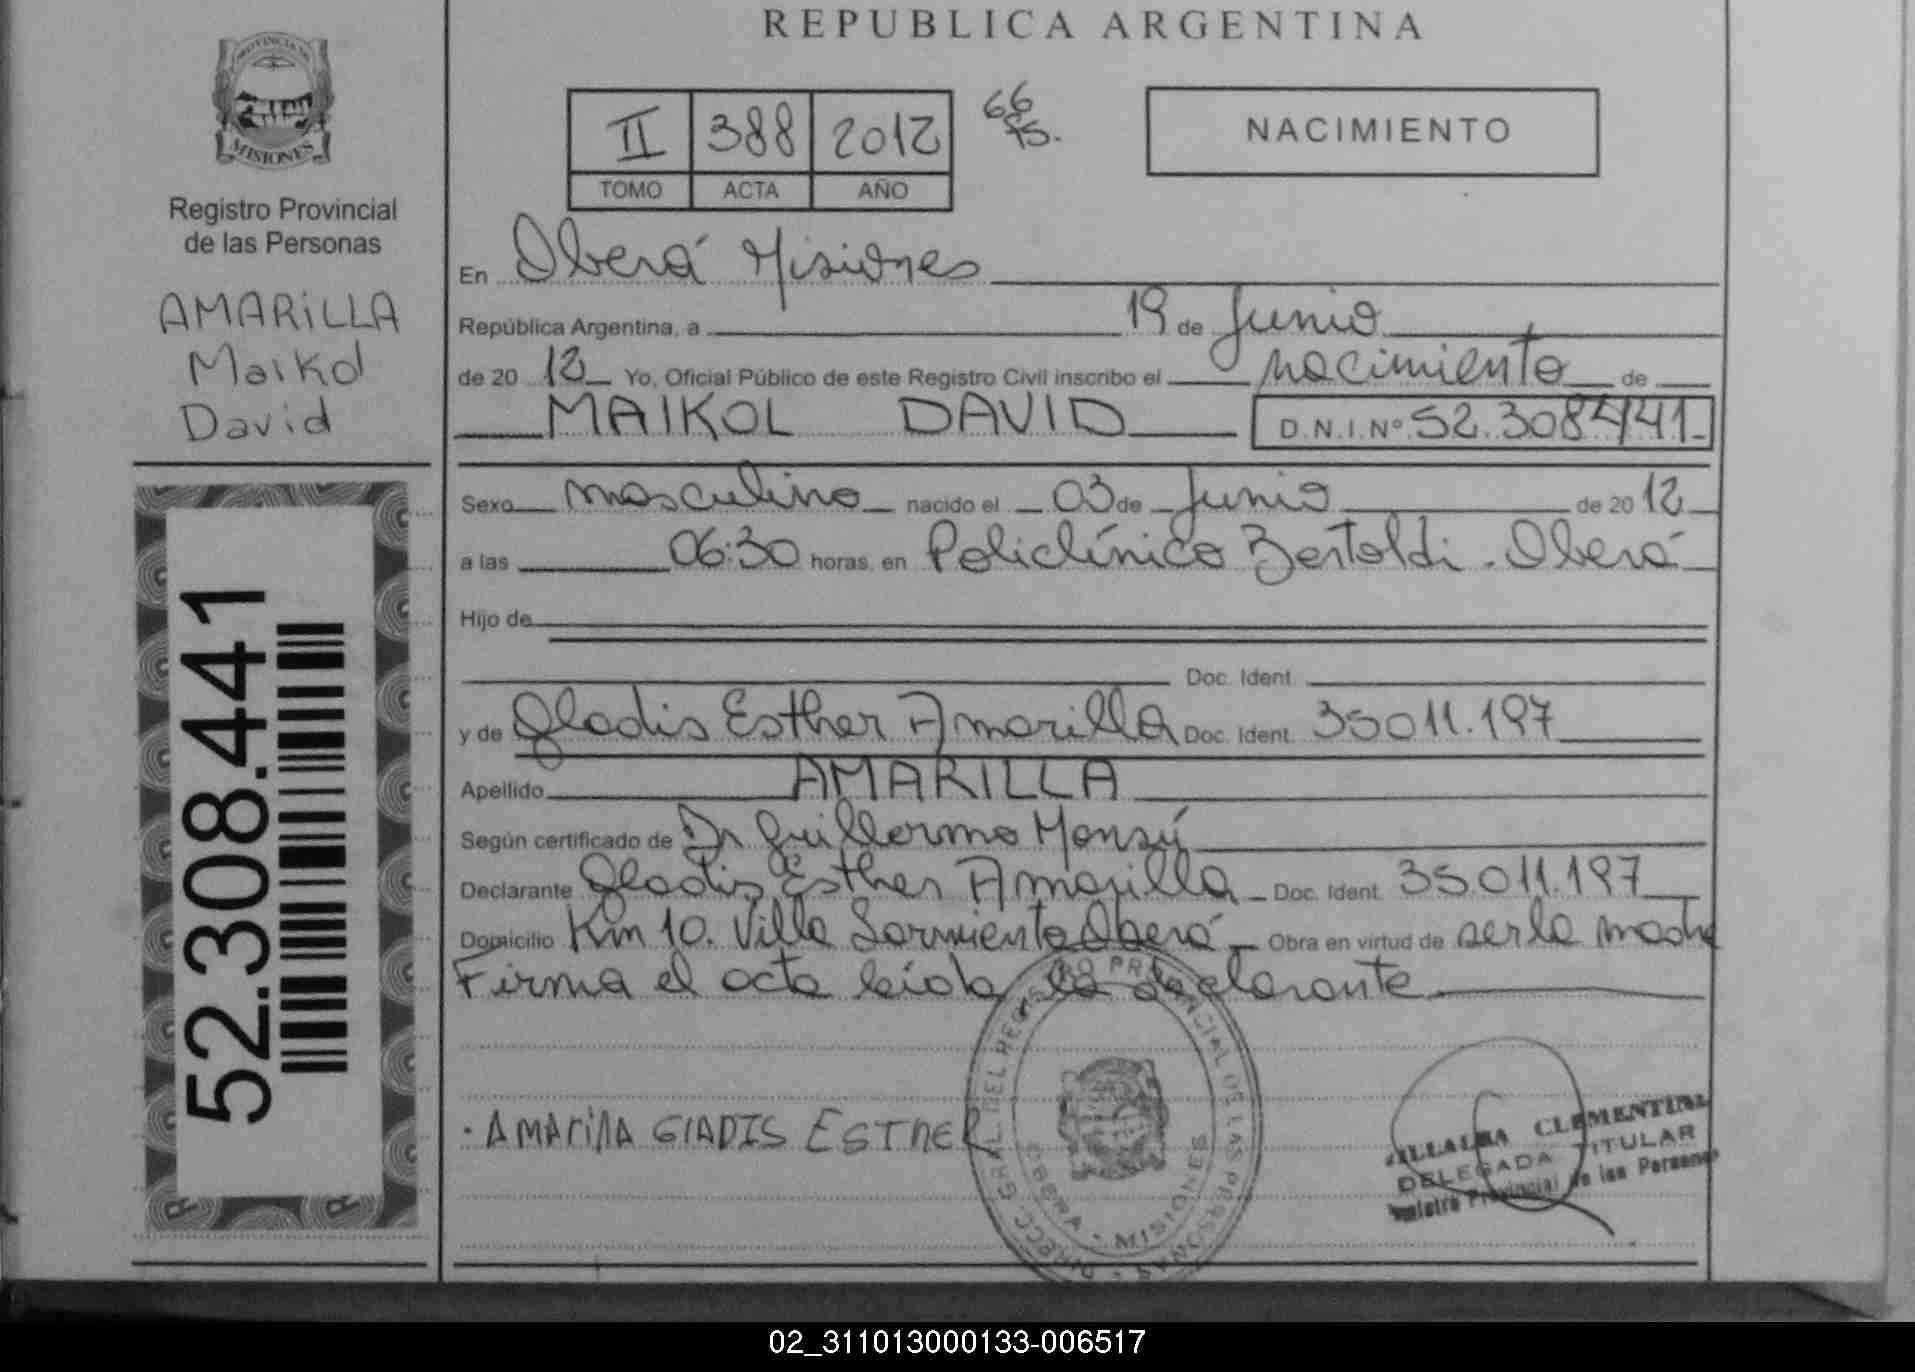 REPUBLICA ARGENTINA
PROVINCIA DE
MISIONES
Registro Provincial
de las Personas
AMARILLA
Maikol
David
52.308.441
II 388 2012
TOMO ACTA AÑO
NACIMIENTO
En Oberá Misiones
República Argentina, a 19 de Junio
de 20 12 Yo, Oficial Público de este Registro Civil inscribo el nacimiento de
MAIKOL DAVID D.N.I.Nº 52.308441
Sexo masculino nacido el 03 de Junio de 20 12
a las 06:30 horas, en Policlínico Bertoldi. Oberá
Hijo de
Doc. Ident.
y de Gladis Esther Amarilla Doc. Ident. 35011.197
Apellido AMARILLA
Según certificado de Dr Guillermo Monsú
Declarante Gladis Esther Amarilla Doc. Ident. 35.011.197
Domicilio Km 10. Villa Sarmiento Oberá Obra en virtud de ser la madre
Firma el acta leída la declarante
AMARILLA GLADIS ESTHER
DIRECC. GRAL. DEL REGISTRO PROVINCIAL DE LAS PERSONAS
OBERA - MISIONES
VILLALBA CLEMENTINA
DELEGADA TITULAR
Registro Provincial de las Personas
02_311013000133-006517